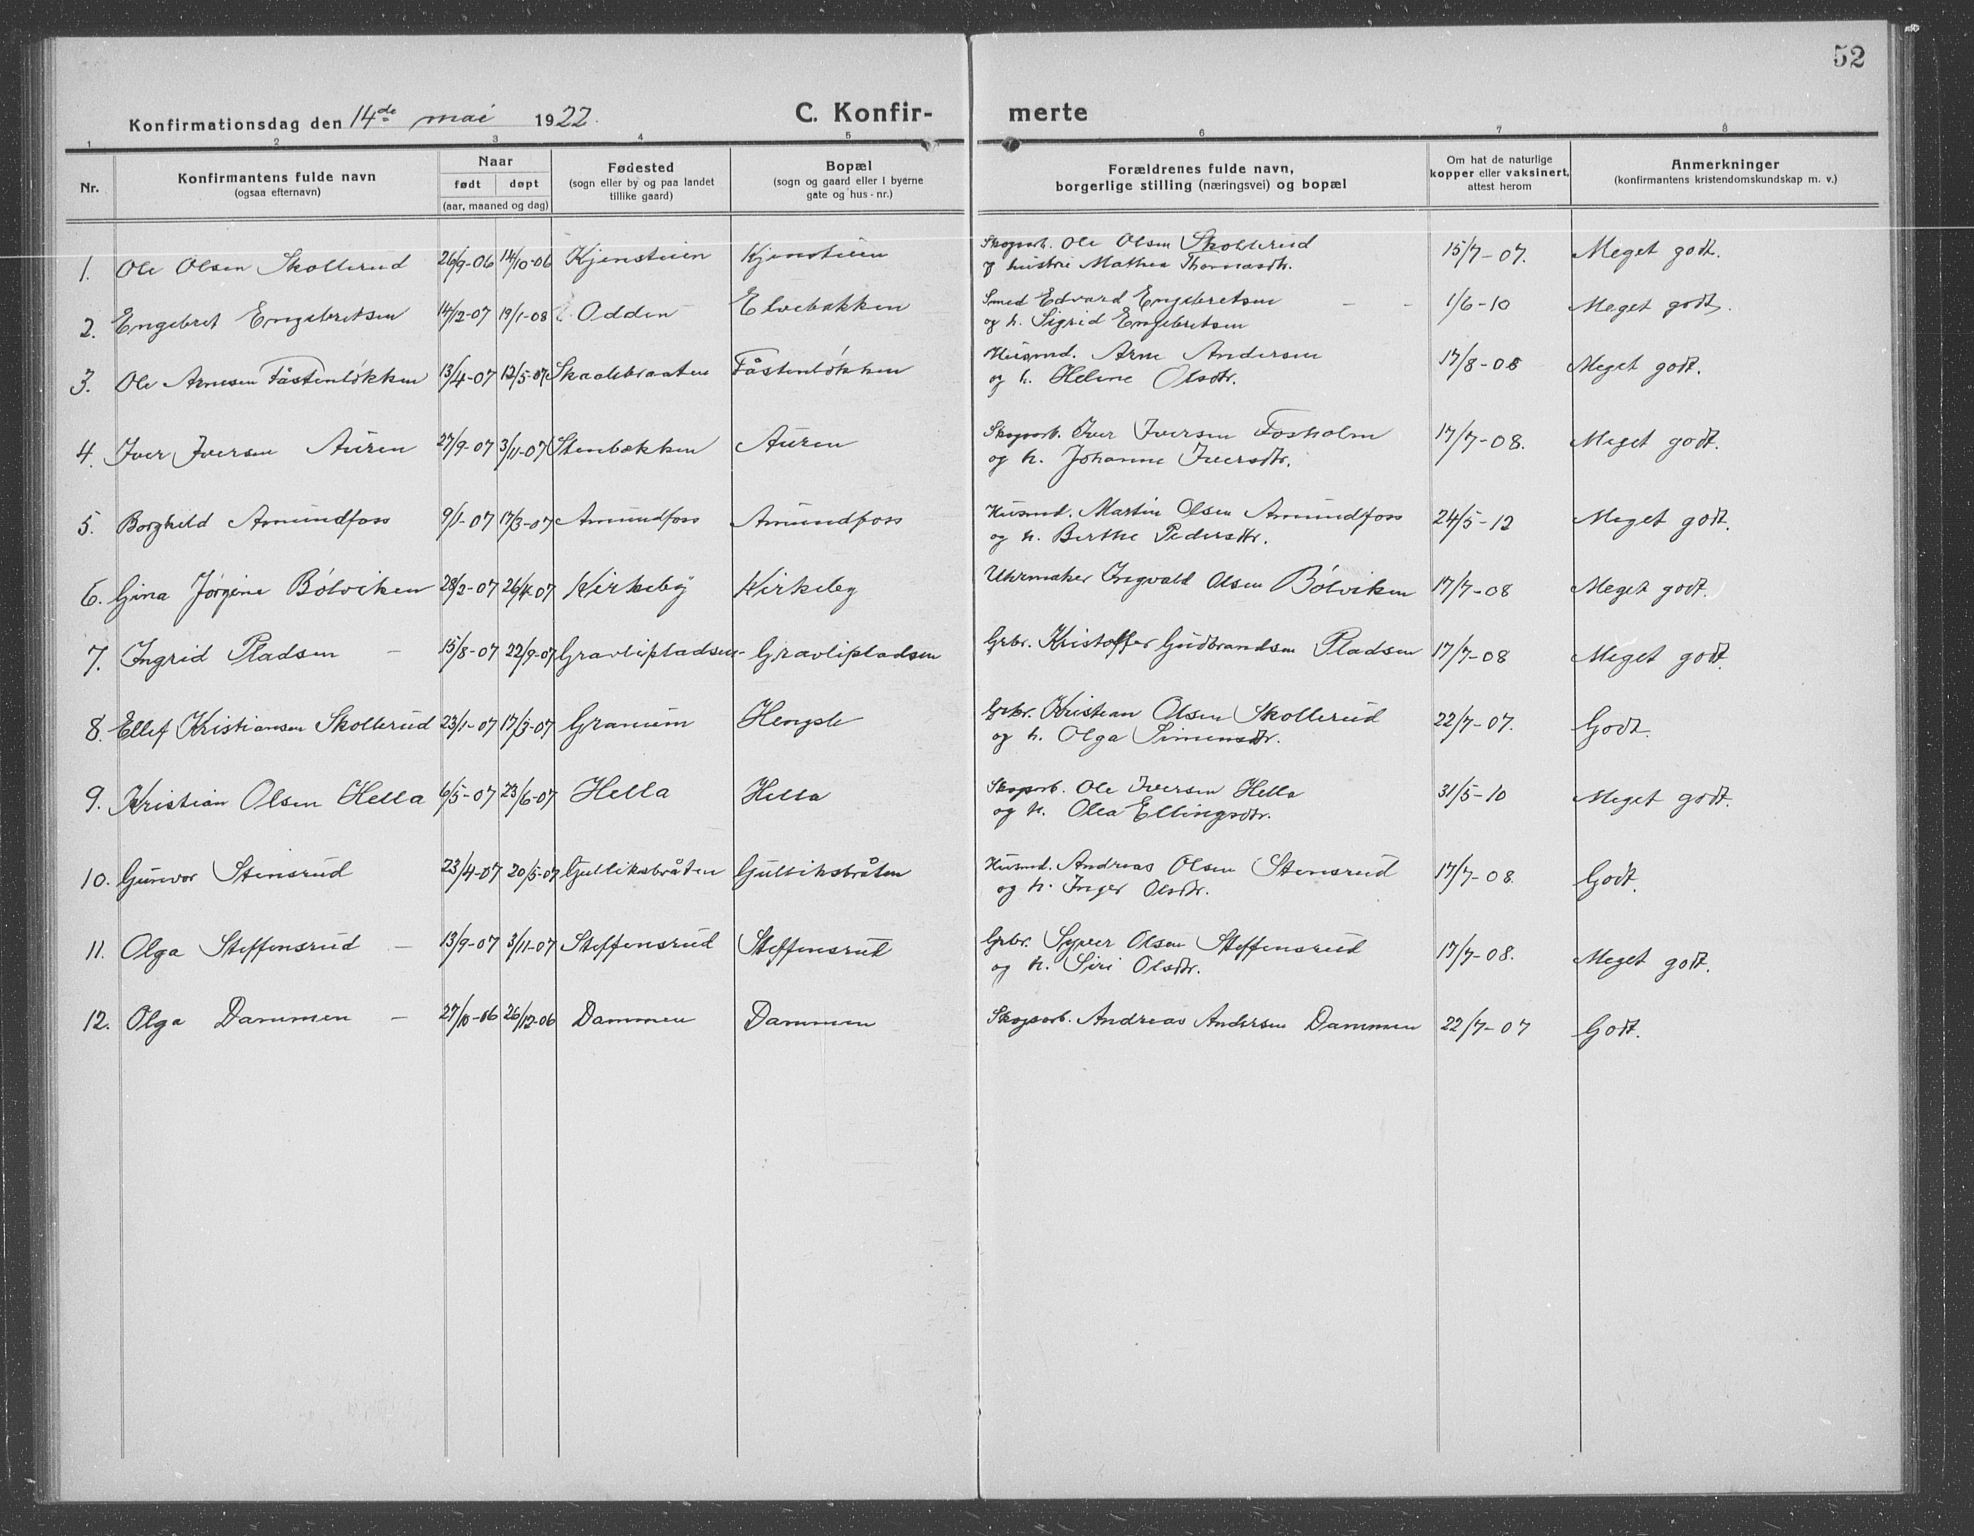 52
Konfirmationsdag den 14de mai 1922.
C. Konfirmerte
1 2 3 4 5 6 7 8
Nr.
Konfirmantens fulde navn
(ogsaa efternavn)
Naar
født døpt
(aar, maaned og dag)
Fødested
(sogn eller by og paa landet
tillike gaard)
Bopæl
(sogn og gaard eller i byerne
gate og hus-nr.)
Forældrenes fulde navn,
borgerlige stilling (næringsvei) og bopæl
Om hat de naturlige
kopper eller vaksinert,
attest herom
Anmerkninger
(konfirmantens kristendomskundskap m. v.)
1. Ole Olsen Skollerud 26/9-06 14/10-06 Kjensteien Kjensteien Skogsarb. Ole Olsen Skollerud 15/7-07. Meget godt.
og hustru Mathea Thomasdtr.
2. Engebret Engebretsen 14/12-07 19/1-08 Odden Elvebakken Smed Edvard Engebretsen - - 1/6-10 Meget godt.
og h. Sigrid Engebretsen
3. Ole Arnesen Fåstenløkken 13/4-07 12/5-07 Skaalebraaten Fåstenløkken Husmd. Arne Andersen 17/8-08 Meget godt.
og h. Helene Olsdtr.
4. Iver Iversen Auren 27/9-07 3/11-07 Stenbækken Auren Skogsarb. Iver Iversen Fosholm 17/7-08. Meget godt.
og h. Johanne Iversdtr.
5. Borghild Amundfoss 9/1-07 17/3-07 Amundfoss Amundfoss Husmd. Martin Olsen Amundfoss 24/5-12 Meget godt.
og h. Berthe Pedersdtr.
6. Gina Jørgine Bølviken 28/2-07 26/4-07 Kirkeby Kirkeby Uhrmaker Ingvald Olsen Bølviken 17/7-08 Meget godt.
7. Ingrid Pladsen - 15/8-07 22/9-07 Gravlipladsen- Gravlipladsen Grbr. Kristoffer Gudbrandsen Pladsen 17/7-08 Meget godt.
8. Ellef Kristiansen Skollerud 23/1-07 17/3-07 Granum Hengsle Grbr. Kristian Olsen Skollerud 22/7-07. Godt.
og h. Olga Simensdtr.
9. Kristian Olsen Hella 6/5-07 23/6-07 Hella Hella Skogsarb. Ole Iversen Hella 31/5-10 Meget godt.
og h. Olea Ellingsdtr.
10. Gunvor Stensrud 23/4-07 20/5-07 Gulliksbråten Gulliksbråten Husmd. Andreas Olsen Stensrud 17/7-08. Godt.
og h. Inger Olsdtr.
11. Olga Steffensrud - 13/9-07 3/11-07 Steffensrud Steffensrud Grbr. Syver Olsen Steffensrud 17/7-08. Meget godt.
og h. Siri Olsdtr.
12. Olga Dammen - 27/10-06 26/12-06 Dammen Dammen Skogsarb. Andreas Andersen Dammen 22/7-07 Godt.